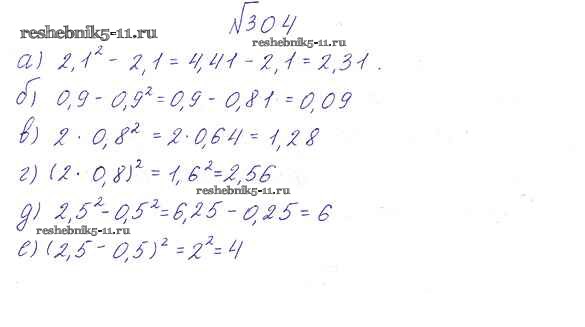 №304
reshebnik5-11.ru
reshebnik5-11.ru
а) 2,1² - 2,1 = 4,41 - 2,1 = 2,31.
б) 0,9 - 0,9² = 0,9 - 0,81 = 0,09
в) 2 · 0,8² = 2 · 0,64 = 1,28
г) (2 · 0,8)² = 1,6² = 2,56
reshebnik5-11.ru
д) 2,5² - 0,5² = 6,25 - 0,25 = 6
reshebnik5-11.ru
е) (2,5 - 0,5)² = 2² = 4